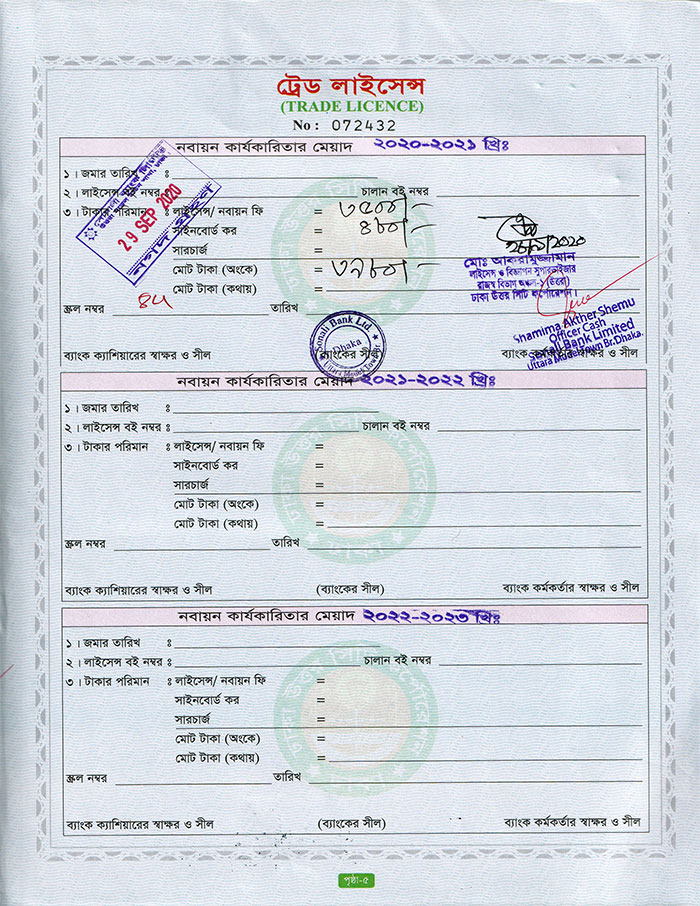 ট্রেড লাইসেন্স
(TRADE LICENCE)
No : 072432
নবায়ন কার্যকারিতার মেয়াদ ২০২০-২০২১ খ্রিঃ
১। জমার তারিখ ঃ
২। লাইসেন্স বই নম্বর ঃ চালান বই নম্বর
29 SEP 2020
নগদ গ্রহণ
৩। টাকার পরিমান ঃ লাইসেন্স/ নবায়ন ফি = ৩৫০০/-
সাইনবোর্ড কর = ৪৮০/-
সারচার্জ
মোট টাকা (অংকে) = ৩৯৮০/-
মোট টাকা (কথায়) =
মোঃ আকরামুজ্জামান
লাইসেন্স ও বিজ্ঞাপন সুপারভাইজার
রাজস্ব বিভাগ অঞ্চল-১ (উত্তরা)
ঢাকা উত্তর সিটি কর্পোরেশন।
স্ক্রল নম্বর তারিখ
Sonali Bank Ltd.
Dhaka
Shamima Akther Shemu
Officer Cash
Sonali Bank Limited
Uttara Model Town Br. Dhaka.
ব্যাংক ক্যাশিয়ারের স্বাক্ষর ও সীল (ব্যাংকের সীল) ব্যাংক কর্মকর্তার স্বাক্ষর ও সীল
নবায়ন কার্যকারিতার মেয়াদ ২০২১-২০২২ খ্রিঃ
১। জমার তারিখ ঃ
২। লাইসেন্স বই নম্বর ঃ চালান বই নম্বর
৩। টাকার পরিমান ঃ লাইসেন্স/ নবায়ন ফি =
সাইনবোর্ড কর =
সারচার্জ =
মোট টাকা (অংকে) =
মোট টাকা (কথায়) =
স্ক্রল নম্বর তারিখ
ব্যাংক ক্যাশিয়ারের স্বাক্ষর ও সীল (ব্যাংকের সীল) ব্যাংক কর্মকর্তার স্বাক্ষর ও সীল
নবায়ন কার্যকারিতার মেয়াদ ২০২২-২০২৩ খ্রিঃ
১। জমার তারিখ ঃ
২। লাইসেন্স বই নম্বর ঃ চালান বই নম্বর
৩। টাকার পরিমান ঃ লাইসেন্স/ নবায়ন ফি =
সাইনবোর্ড কর =
সারচার্জ =
মোট টাকা (অংকে) =
মোট টাকা (কথায়) =
স্ক্রল নম্বর তারিখ
ব্যাংক ক্যাশিয়ারের স্বাক্ষর ও সীল (ব্যাংকের সীল) ব্যাংক কর্মকর্তার স্বাক্ষর ও সীল
পৃষ্ঠা-৫